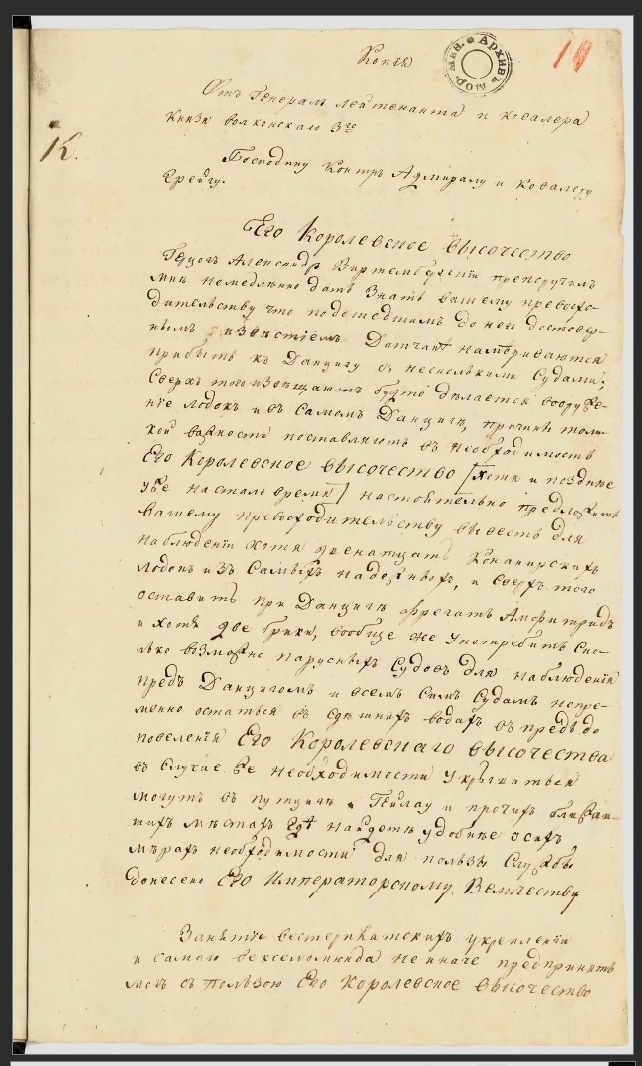 Копія
Архивъ Мор. Мин.
19
К.
Отъ Генералъ лейтенанта и ковалера
Князя волконскаго 3го
Господину Контръ Адмиралу и Ковалеру
Грейгу.
Его Королевское высочество
Герцогъ Александръ Виртембергскій препоручилъ
мнѣ немедлѣнно дать знать вашему превосхо-
дительству что по дошедшимъ до ней достовер-
нымъ извѣстіемъ Датчанѣ намѣриваются
прибыть къ Данцигу съ нѣсколькими судами;
Сверхъ того извѣщаютъ будто дѣлается вооруже-
ніе лодокъ и въ самомъ Данцигѣ, причины толи-
кой важности поставляютъ въ необходимость
Его Королевское высочество [хотя и позднее
уже настало время] настоятельно предложить
вашему превосходительству вывесть для
наблюденіи хотя двенатцать Конанирскихъ
лодокъ изъ самыхъ надежныхъ, и сверхъ того
оставить при Данцигѣ фрегатъ Амфитридъ
и хотя две брики, вообще же употребить ско-
лько возможно парусныхъ судовъ для наблюденія
предъ Данцигомъ и всемъ симъ судамъ непре-
менно остаться въ сдѣшнихъ водахъ въ предь до
повеленія Его Королевскаго высочества
въ случие же необходимости укрываться
могутъ въ путцигѣ и Пилау и прочихъ ближай-
шихъ мѣстахъ гдѣ найдетъ удобнѣе о сихъ
мѣрахъ необходимости для пользы службы
донесено Его Императорскому Величеству
Занятіе вестерплатскихъ укрепленіи
и самаго векселмюнда не иначе предпринять
могъ съ пользою Его Королевское высочество